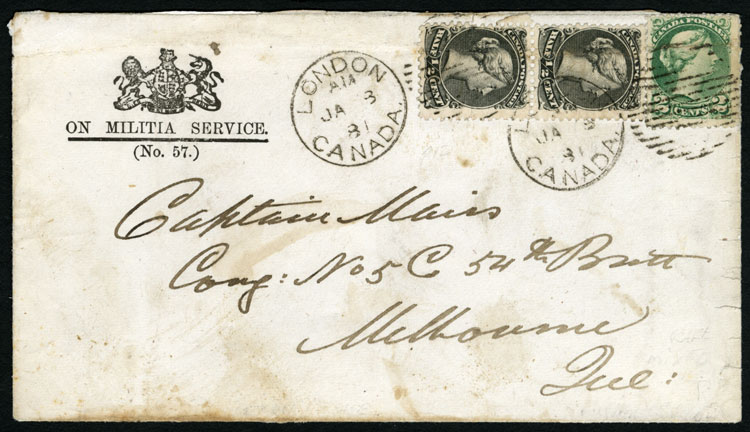 ON MILITIA SERVICE.
(No. 57.)
LONDON
AM
JA 3
81
CANADA.
HALF CENT
HALF CENT
CANADA POSTAGE
2 CENTS 2
JA 3
81
CANADA.
Captain Mairs
Comg: No 5 C 54th Batt
Melbourne
Que: